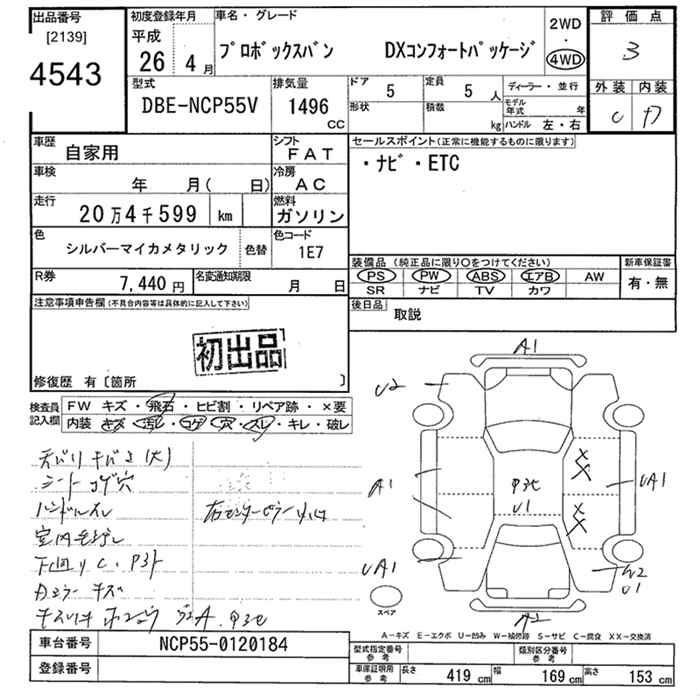 出品番号 初度登録年月 車名・グレード 評価点
[2139] 平成 26年 4月 プロボックスバン DXコンフォートパッケージ 2WD・4WD 3
4543
型式 排気量 ドア 5 定員 5人 ディーラー・並行 外装 内装
DBE-NCP55V 1496 CC 形状 積載 kg モデル年式 年 C
ハンドル 左・右
車歴 自家用 シフト FAT セールスポイント(正常に機能するものに限ります)
車検 年 月( 日) 冷房 AC ・ナビ・ETC
走行 20万4千599 km 燃料 ガソリン
色 シルバーマイカメタリック 色替 色コード 1E7
装備品 (純正品に限り○をつけてください) 新車保証書
R券 7,440円 名変通知期限 月 日 PS PW ABS エアB AW 有・無
SR ナビ TV カワ
注意事項申告欄(不具合内容等は具体的に記入して下さい) 後日品 取説
初出品
修復歴 有〔箇所 〕
検査員記入欄 FW キズ・飛石・ヒビ割・リペア跡・×要
内装 キズ・汚レ・コゲ・穴・スレ・キレ・破レ
A1
U2
シート コゲ穴
A1
UA1
ハンドルスレ
U1
UA1
W2
U1
キズ
スペア
A2
A-キズ E-エクボ U-凹み W-補修跡 S-サビ C-腐食 XX-交換済
車台番号 NCP55-0120184
型式指定番号 参考 類別区分番号 参考
登録番号
車庫証明用 参考 長さ 419 cm 幅 169 cm 高さ 153 cm